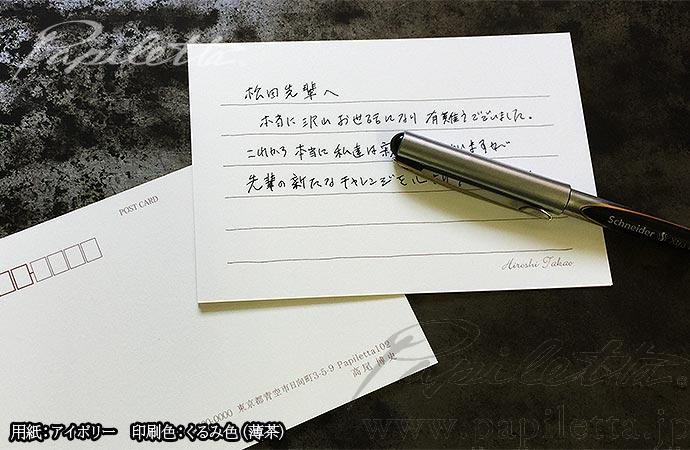 Papiletta.
松田先輩へ
本当に沢山お世話になり 有難うございました。
これから本当に私達は寂 いますが
先輩の新たなチャレンジを心
Schneider
Hiroshi Takao
POST CARD
0-0000 東京都青空市日向町3-5-9 Papiletta102
高尾 博史
Papiletta.
www.papiletta.jp
用紙:アイボリー 印刷色:くるみ色(薄茶)